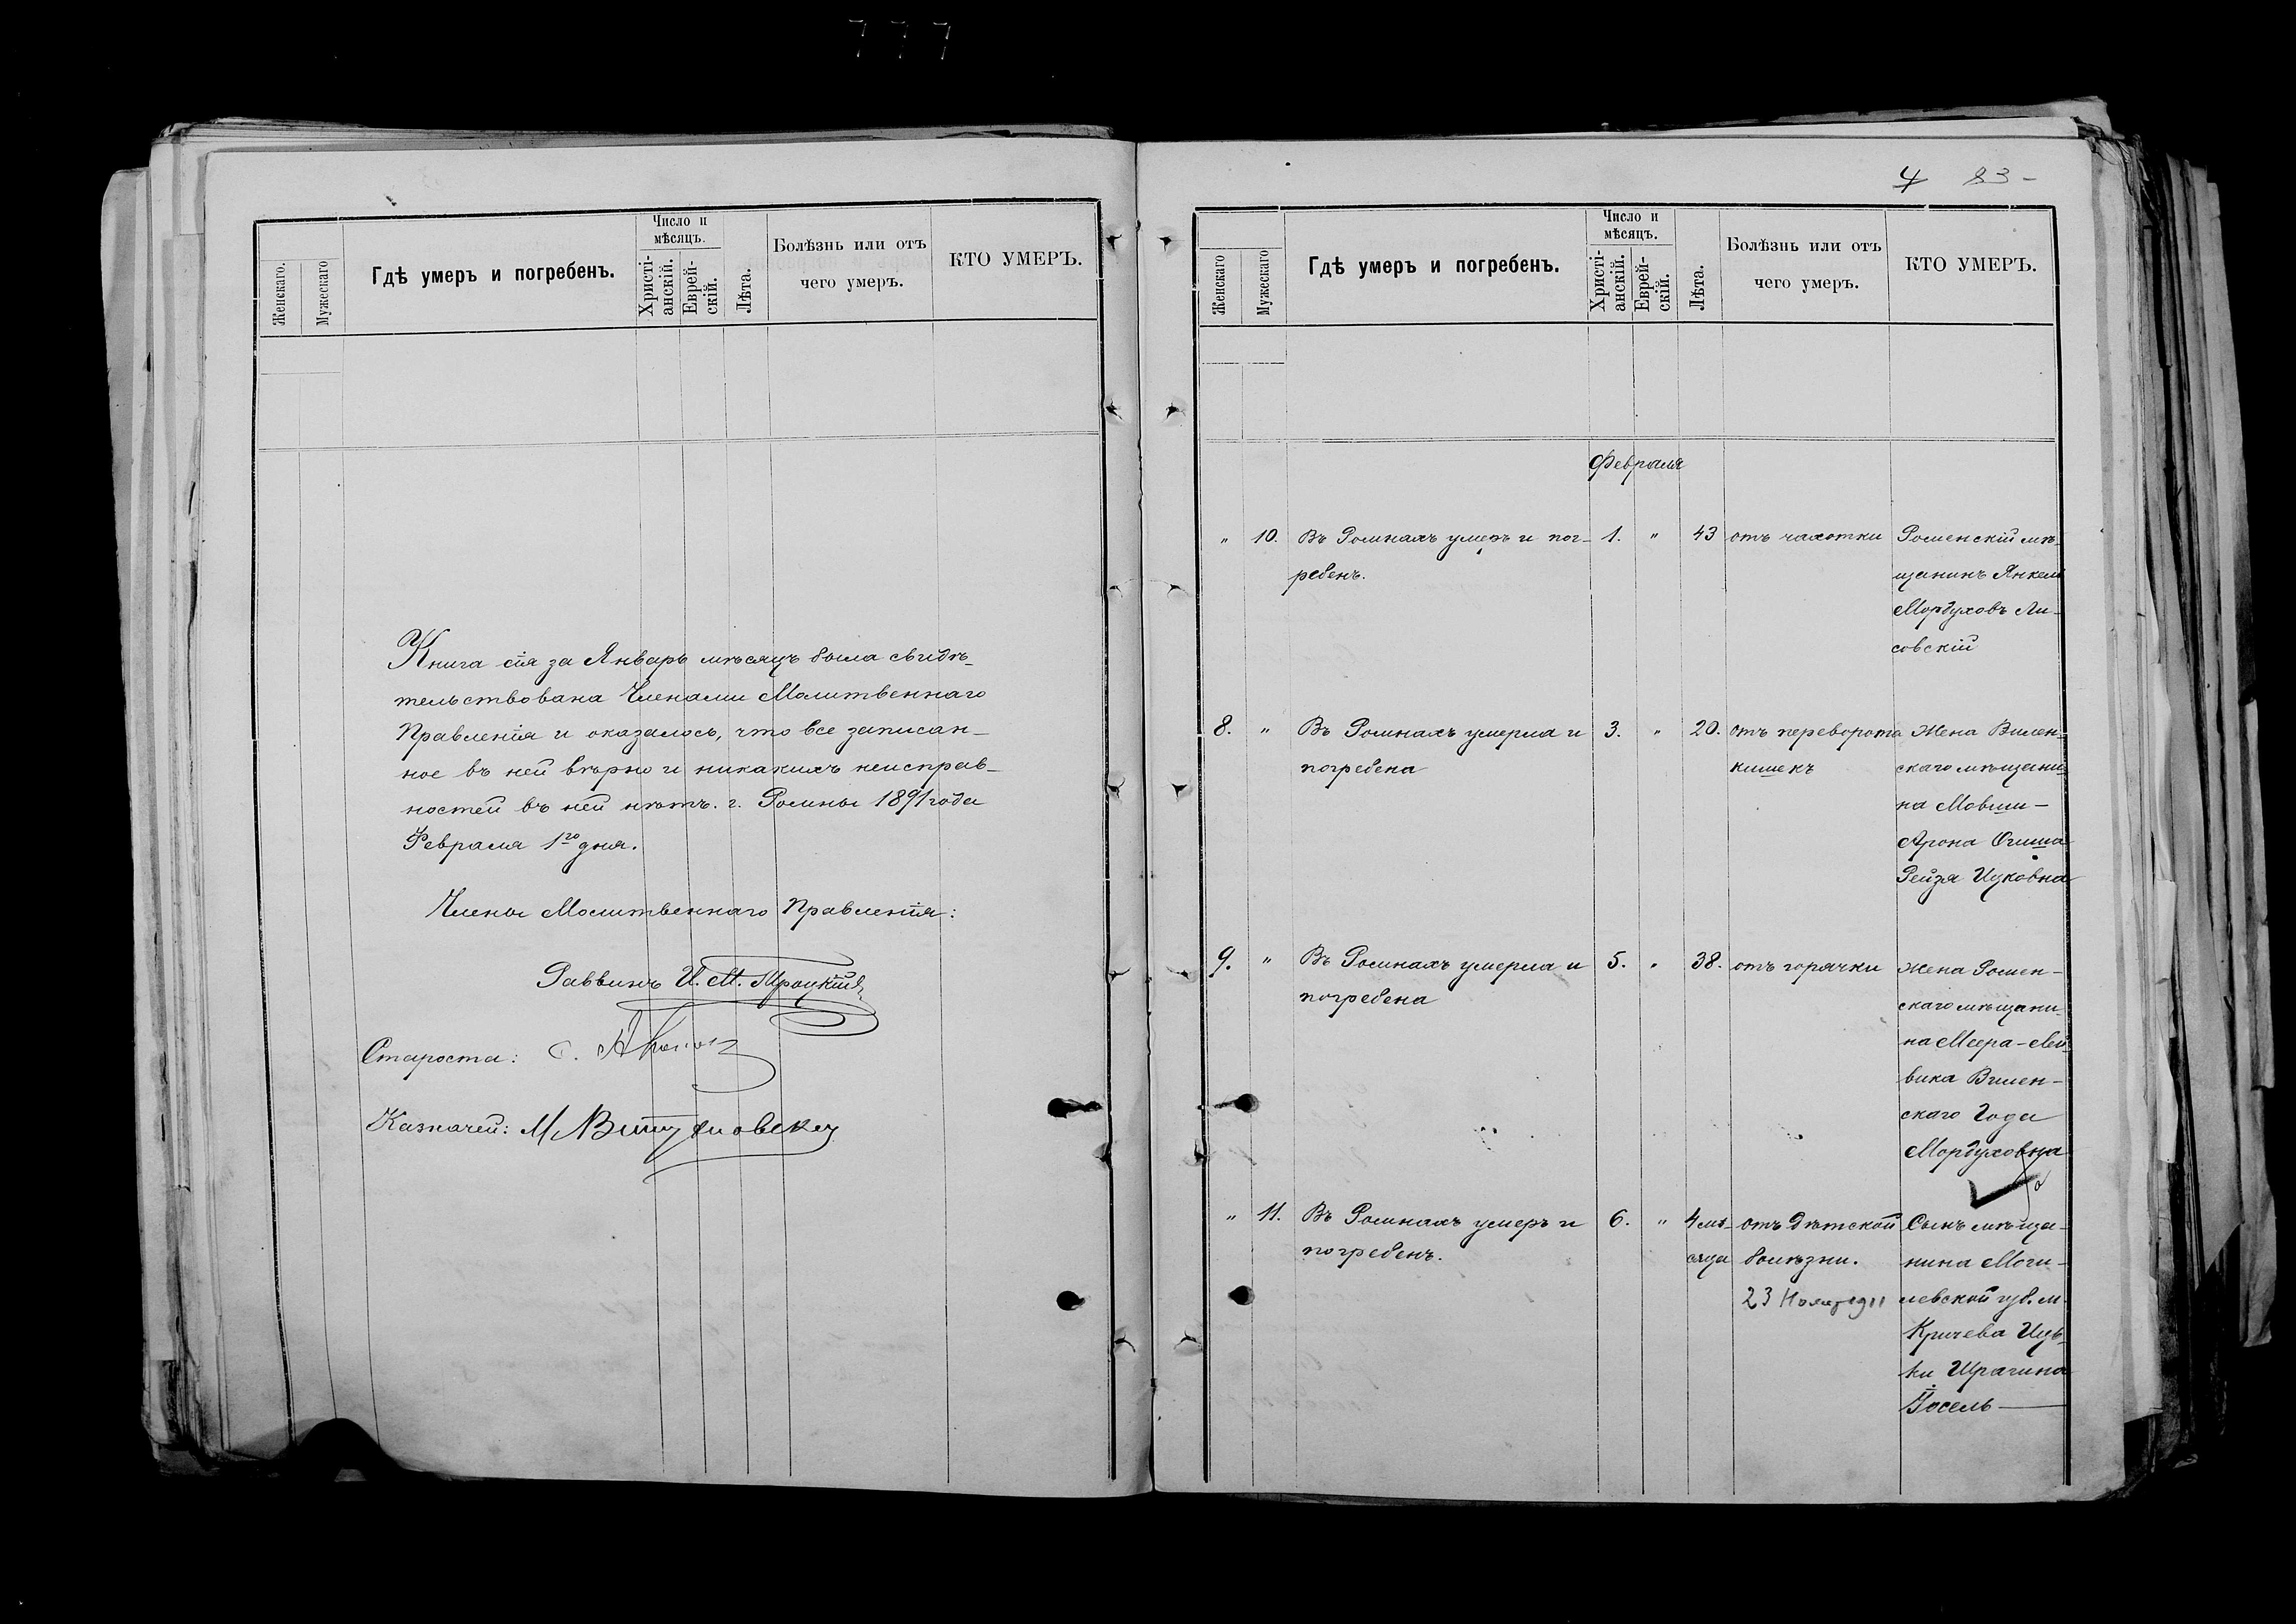 777
Женскаго.
Мужескаго
Гдѣ умеръ и погребенъ.
Число и
мѣсяцъ.
Христі-
анскій.
Еврей-
скій.
Лѣта.
Болѣзнь или отъ
чего умеръ.
КТО УМЕРЪ.
Книга сія за Январь мѣсяцъ была свидѣ-
тельствована Членами Молитвеннаго
Правленія и оказалось, что все записан-
ное въ ней вѣрно и никакихъ неисправ-
ностей въ ней нѣтъ. г. Ромны 1891 года
Февраля 1го дня.
Члены Молитвеннаго Правленія:
Раввинъ И. М. Троцкій
Староста:
Казначей: М
4 83-
Женскаго
Мужескаго
Гдѣ умеръ и погребенъ.
Число и
мѣсяцъ.
Христі-
анскій.
Еврей-
скій.
Лѣта.
Болѣзнь или отъ
чего умеръ.
КТО УМЕРЪ.
Февраля
" 10. Въ Ромнахъ умеръ и пог- 1. " 43 отъ чахотки Роменскій мѣ-
ребенъ. щанинъ Янкель
Мордуховъ Ли-
совскій
8. " Въ Ромнахъ умерла и 3. " 20. отъ переворота Жена Вилен-
погребена кишекъ скаго мѣщани-
на Мовши-
Арона
Рейзя Ицковна
9. " Въ Ромнахъ умерла и 5. " 38. отъ горячки Жена Ромен-
погребена скаго мѣщани-
на Меера-Лей-
вика Вилен-
скаго Года
Мордуховна
" 11. Въ Ромнахъ умеръ и 6. " 4 мѣ- отъ дѣтской Сынъ мѣща-
погребенъ. сяца болѣзни. нина Моги-
23 Нояб 1911 левской губ. м.
Кричева Иць-
ки Шрагина
Іосель